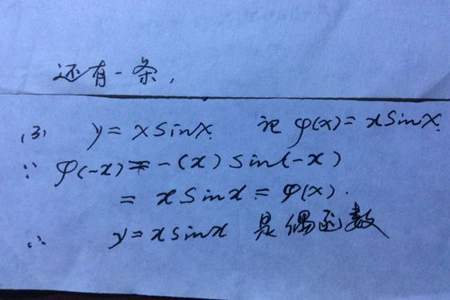 还有一条,
(3) y = xsinx. 记 φ(x) = xsinx.
∵ φ(-x) = -(x) sin(-x)
= xsinx = φ(x).
∴ y = xsinx 是偶函数